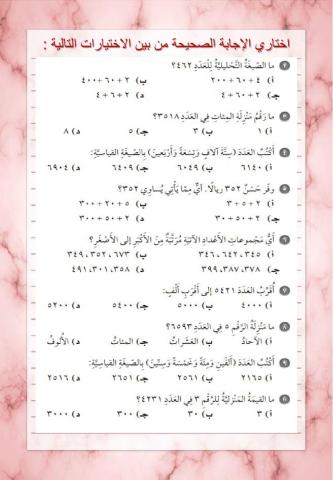 اختاري الإجابة الصحيحة من بين الاختيارات التالية :
٢ ما الصِّيغَةُ التَّحْلِيلِيَّةُ لِلْعَدَدِ ٤٦٢؟
أ) ٤ + ٦٠ + ٢٠٠ ب) ٢ + ٦٠ + ٤٠٠
جـ) ٢ + ٦٠ + ٤ د) ٢ + ٦ + ٤
٣ ما رَقْمُ مَنْزِلَةِ المِئاتِ فِي العَدَدِ ٣٥١٨؟
أ) ١ ب) ٣ جـ) ٥ د) ٨
٤ أَكْتُبُ العَدَدَ (سِتَّةَ آلافٍ وَتِسْعَةً وَأَرْبَعِينَ) بِالصِّيغَةِ القِياسِيَّةِ:
أ) ٦١٤٠ ب) ٦٠٤٩ جـ) ٦٤٠٩ د) ٦٩٠٤
٥ وفَّر حَسَنٌ ٣٥٢ ريالًا. أَيٌّ مِمّا يَأْتِي يُساوِي ٣٥٢؟
أ) ٣ + ٥ + ٢ ب) ٥ + ٢٠ + ٣٠٠
جـ) ٢ + ٥٠ + ٣٠ د) ٢ + ٥٠ + ٣٠٠
٦ أَيُّ مَجْموعاتِ الأَعْدادِ الآتِيَةِ مُرَتَّبَةٌ مِنَ الأَكْبَرِ إِلى الأَصْغَرِ؟
أ) ٣٤٥، ٦٤٢، ٣٤٦ ب) ٦٧٣، ٣٥٢، ٣٤٩
جـ) ٣٧٨، ٣٨٧، ٣٩٩ د) ٣٥٨، ٣٠١، ٤٩١
٧ أُقَرِّبُ العَدَدَ ٥٤٢١ إلى أَقْرَبِ أَلْفٍ:
أ) ٤٠٠٠ ب) ٥٠٠٠ جـ) ٥٤٠٠ د) ٥٢٠٠
٨ ما مَنْزِلَةُ الرَّقْمِ ٥ فِي العَدَدِ ٦٥٩٣؟
أ) الآحادُ ب) العَشَراتُ جـ) المِئاتُ د) الأُلوفُ
٩ أَكْتُبُ العَدَدَ (أَلْفَيْنِ وَمِئَةً وَخَمْسَةً وَسِتِّينَ) بِالصِّيغَةِ القِياسِيَّةِ:
أ) ٢١٦٥ ب) ٢٥٦١ جـ) ٢٦٥١ د) ٢٥١٦
ما القِيمَةُ المَنْزِلِيَّةُ لِلرَّقْمِ ٣ فِي العَدَدِ ٤٢٣١؟
أ) ٣ ب) ٣٠ جـ) ٣٠٠ د) ٣٠٠٠